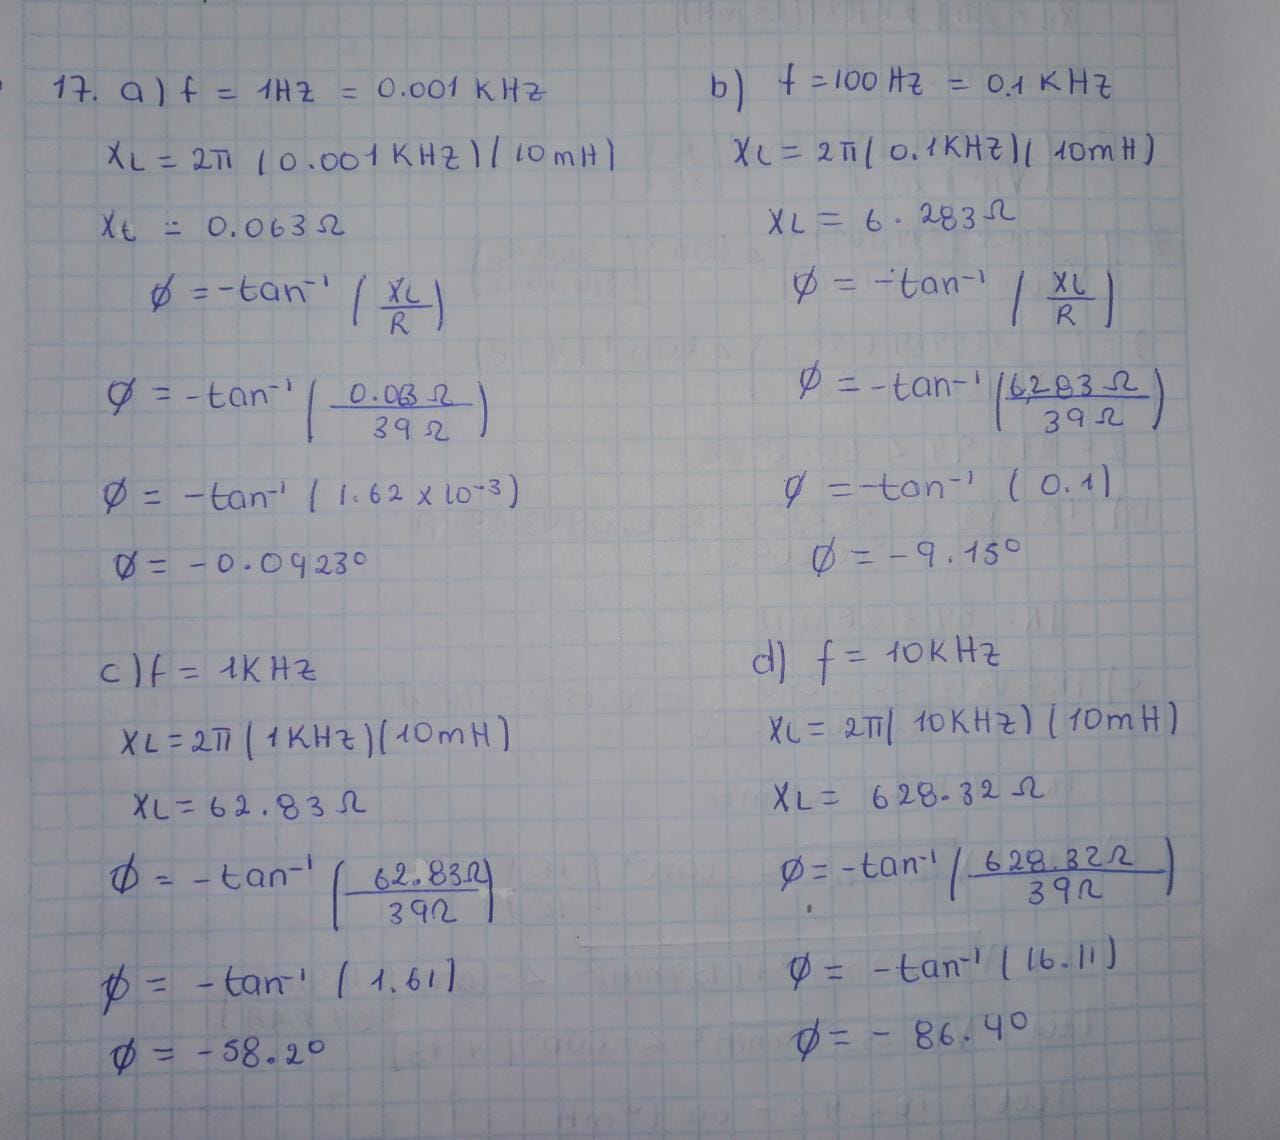 17. a) f = 1HZ = 0.001 KHZ
XL = 2π (0.001KHZ) (10mH)
XL = 0.063Ω
Ø = -tan⁻¹ (XL/R)
Ø = -tan⁻¹ (0.063Ω/39Ω)
Ø = -tan⁻¹ (1.62 x 10⁻³)
Ø = -0.0923°
b) f = 100 HZ = 0.1 KHZ
XL = 2π (0.1KHZ) (10mH)
XL = 6.283Ω
Ø = -tan⁻¹ (XL/R)
Ø = -tan⁻¹ (6.283Ω/39Ω)
Ø = -tan⁻¹ (0.1)
Ø = -9.15°
c) f = 1KHZ
XL = 2π (1KHZ) (10mH)
XL = 62.83Ω
Ø = -tan⁻¹ (62.83Ω/39Ω)
Ø = -tan⁻¹ (1.61)
Ø = -58.2°
d) f = 10KHZ
XL = 2π (10KHZ) (10mH)
XL = 628.32Ω
Ø = -tan⁻¹ (628.32Ω/39Ω)
Ø = -tan⁻¹ (16.11)
Ø = -86.4°